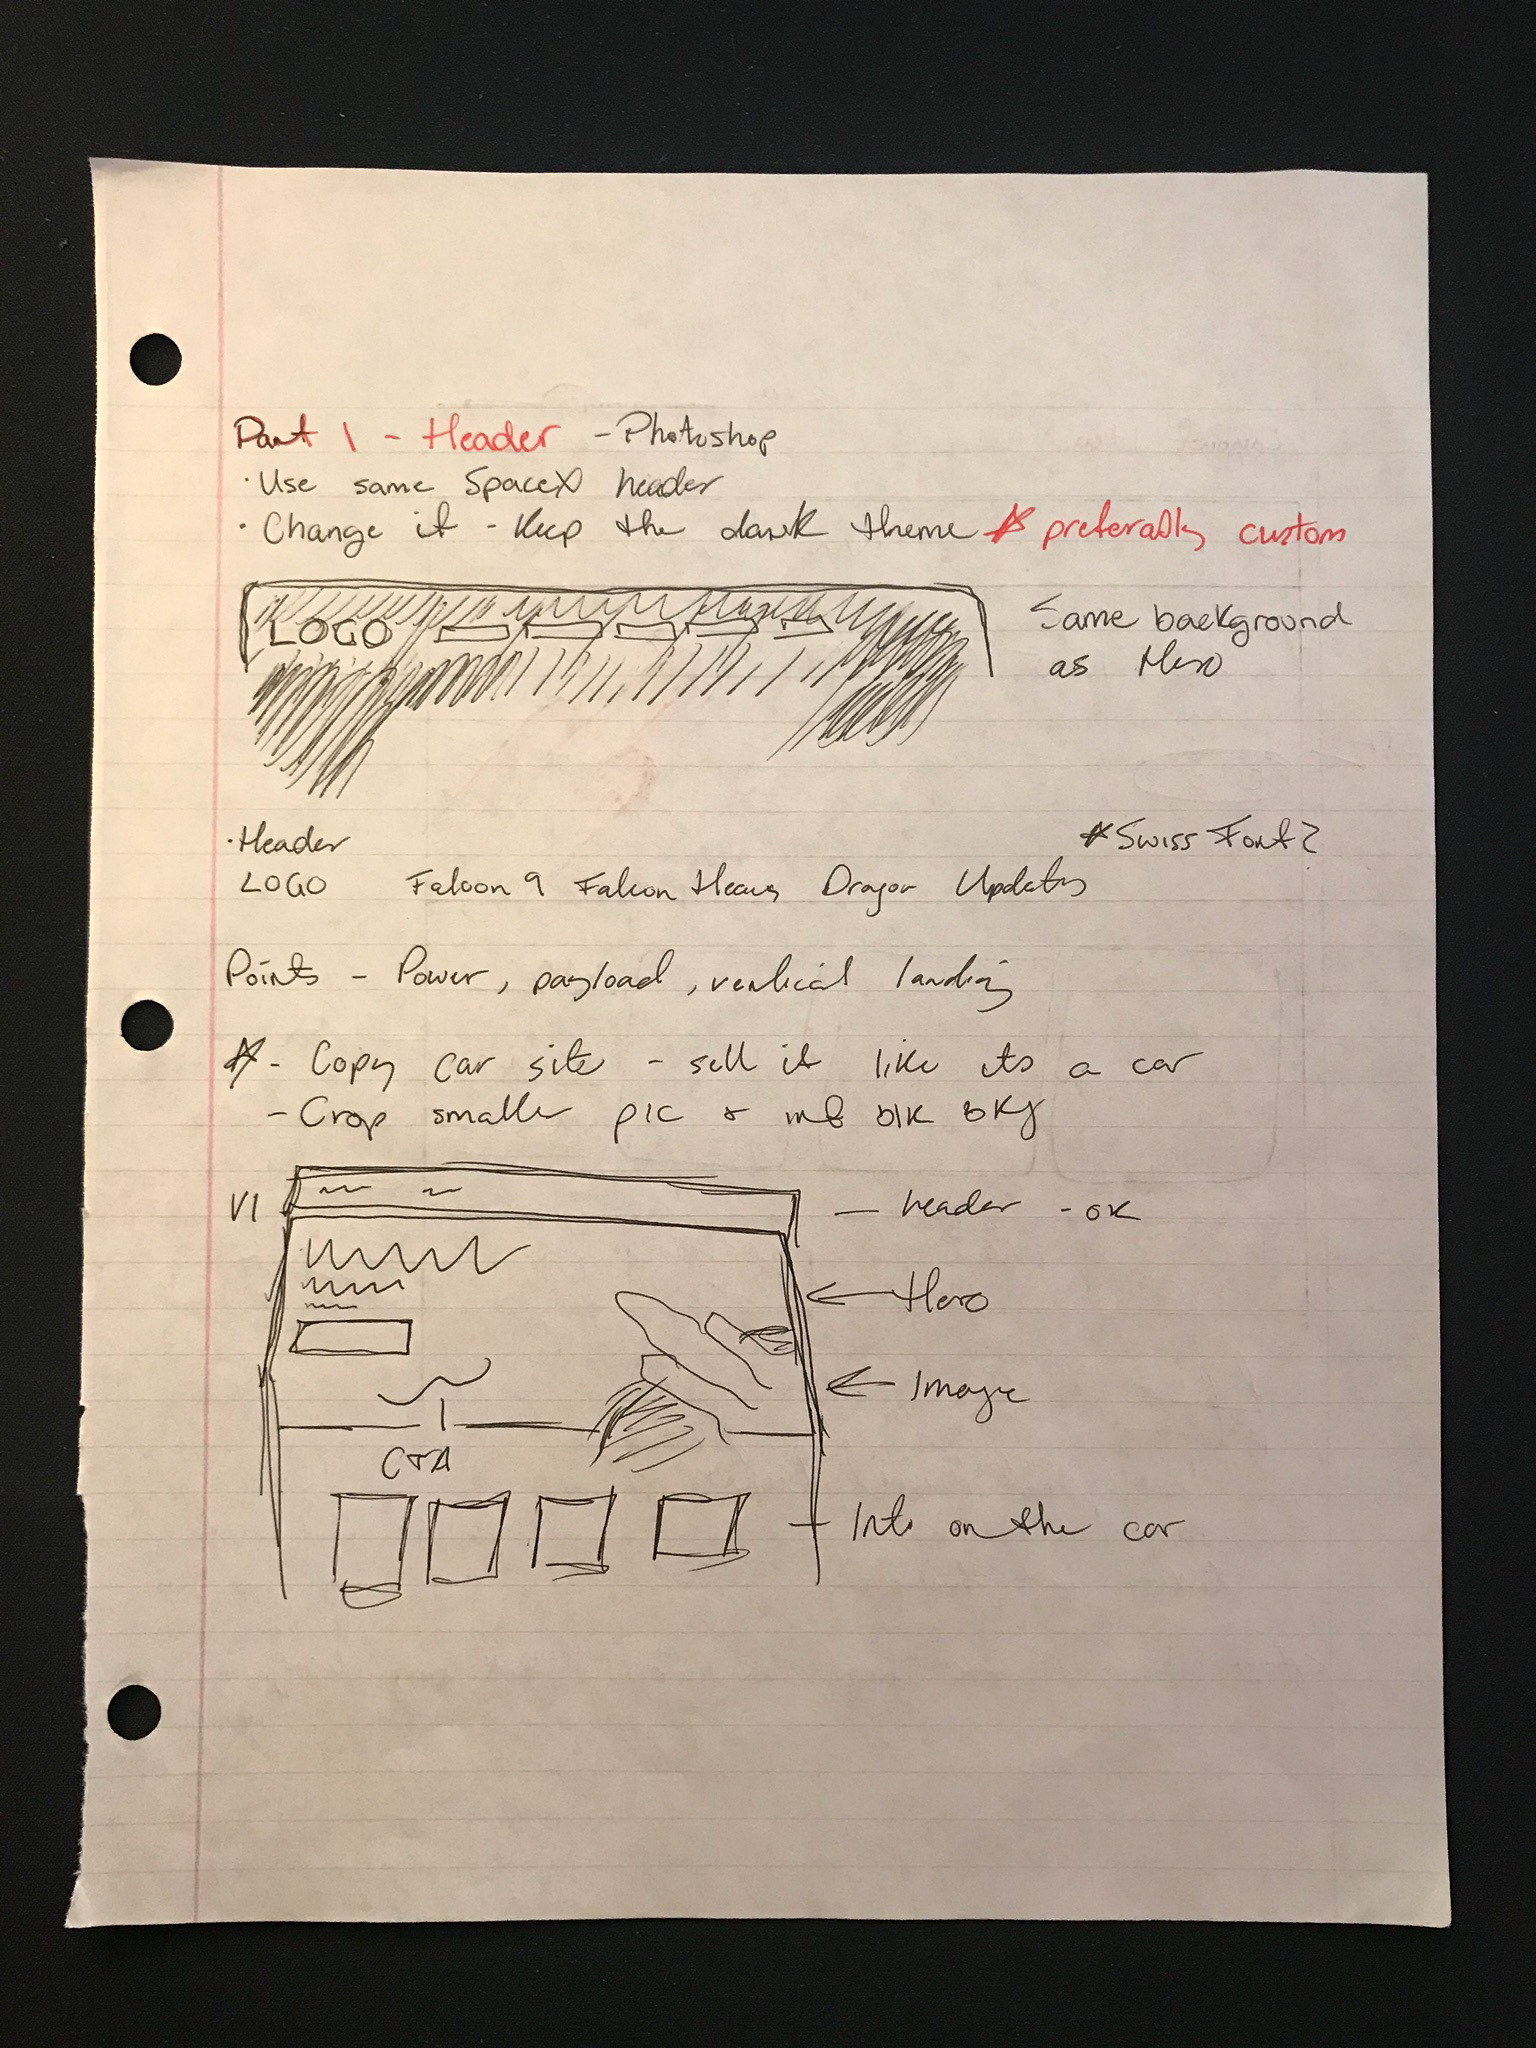 Part 1 - Header - Photoshop
· Use same SpaceX header
· Change it - keep the dark theme * preferably custom
LOGO
Same background
as Hero
· Header
* Swiss Font?
LOGO Falcon 9 Falcon Heavy Dragon Updates
Points - Power, payload, vertical landing
* - Copy car site - sell it like its a car
- Crop smaller pic & blk bkg
V1
- header - ok
← Hero
← Image
CTA
- Info on the car